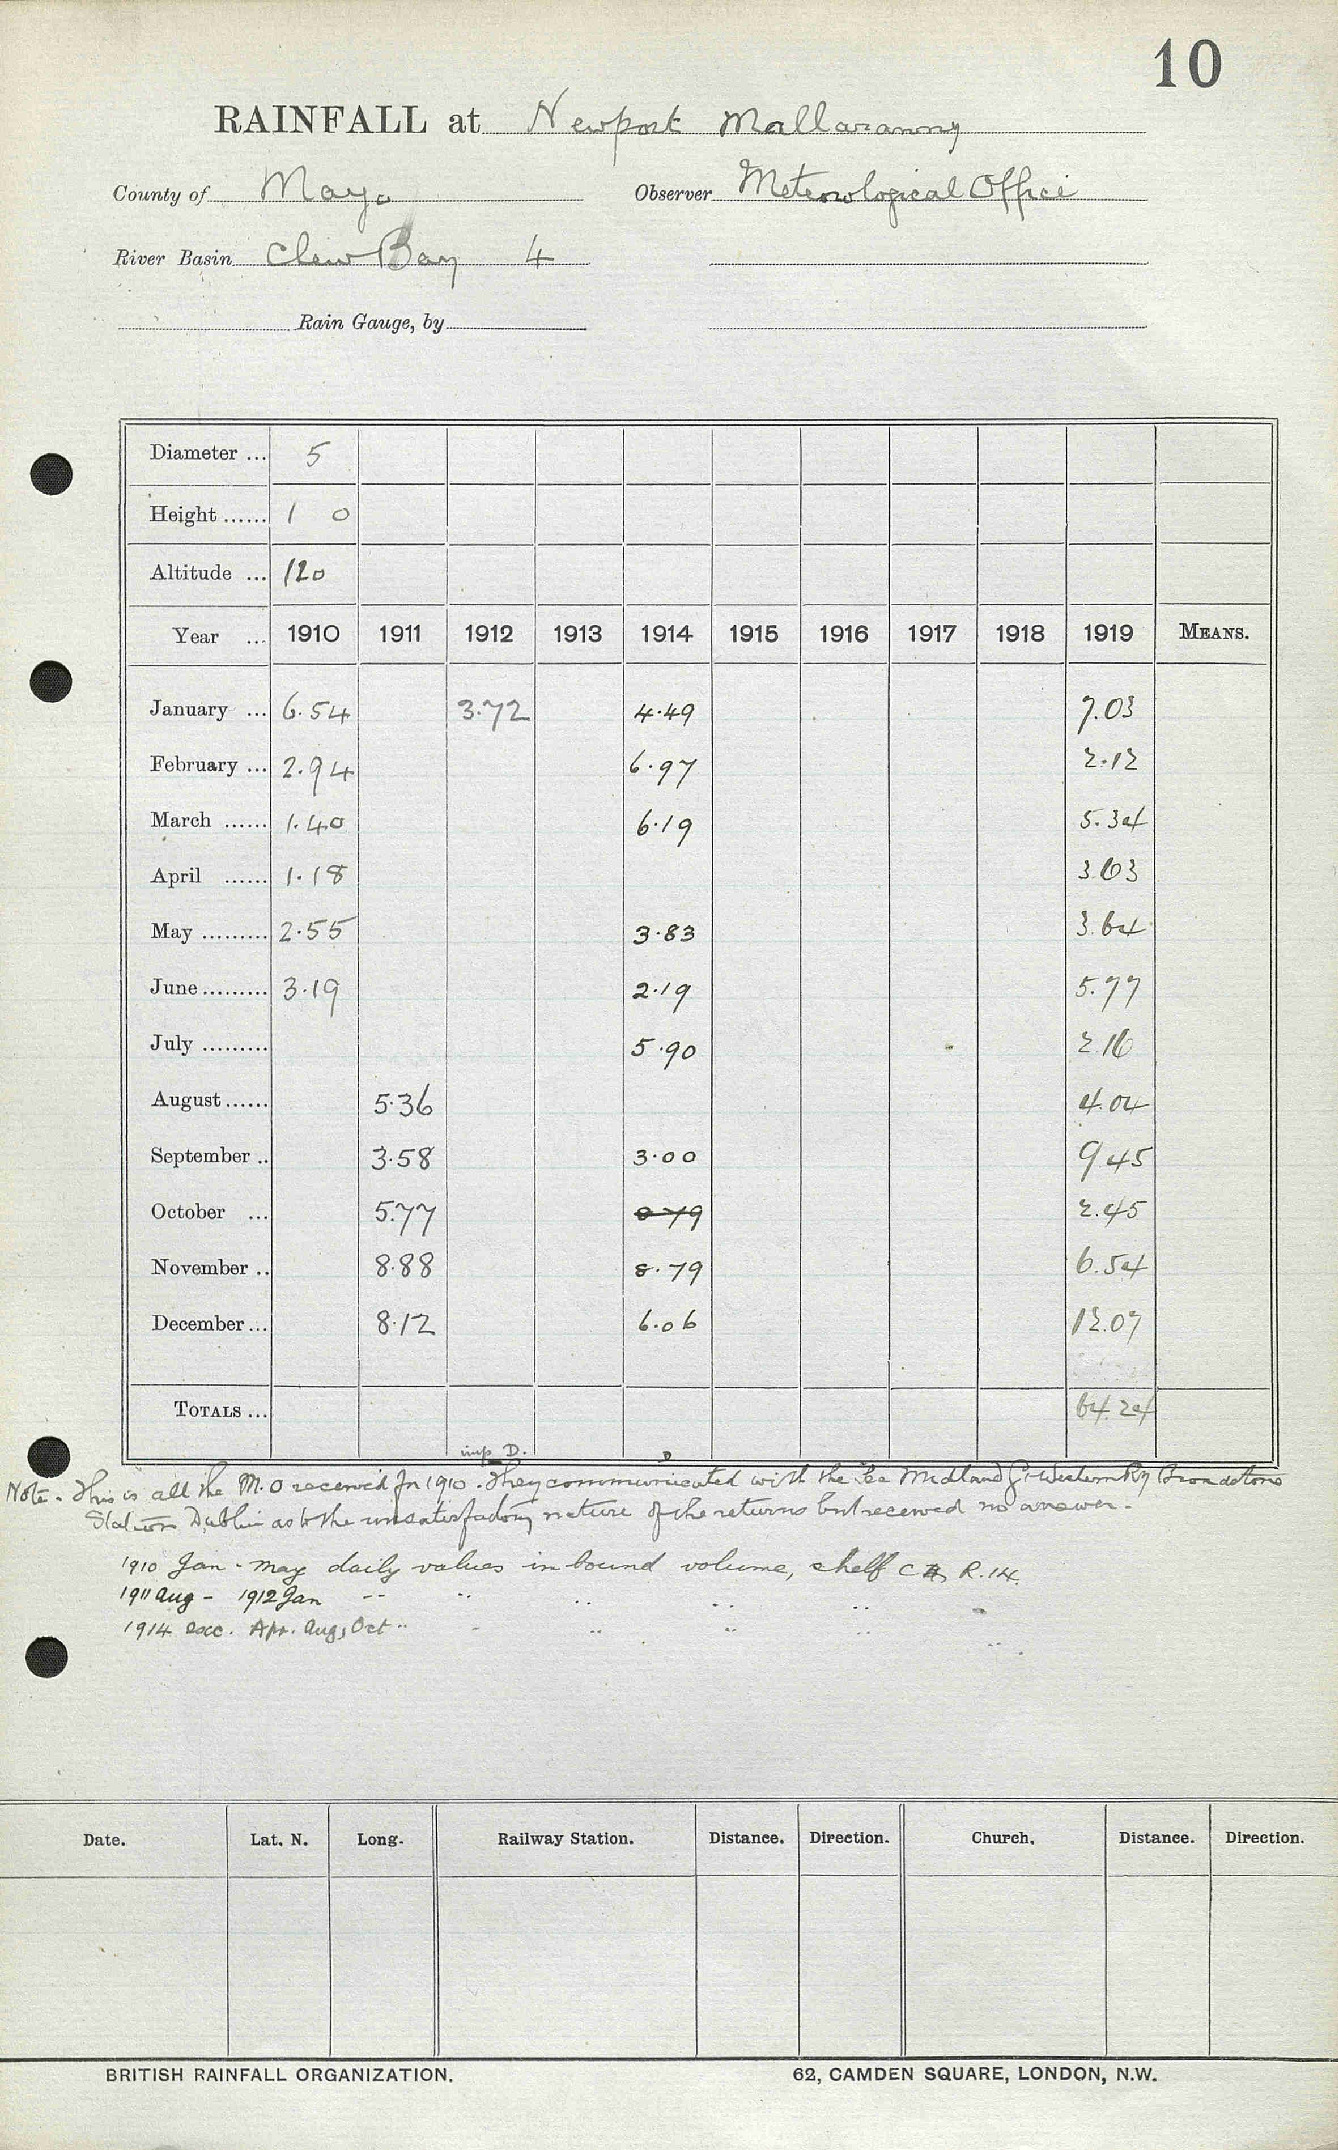 10
RAINFALL at Newport Mallaranny
County of Mayo Observer Meteorological Office
River Basin Clew Bay 4
Rain Gauge, by
Diameter ... 5
Height ...... 1 0
Altitude ... 120
Year ... 1910 1911 1912 1913 1914 1915 1916 1917 1918 1919 MEANS.
January ... 6.54 3.72 4.49 7.03
February ... 2.94 6.97 2.12
March ...... 1.40 6.19 5.34
April ...... 1.18 3.63
May ......... 2.55 3.83 3.64
June ......... 3.19 2.19 5.77
July ......... 5.90 2.16
August ...... 5.36 4.04
September .. 3.58 3.00 9.45
October ... 5.77 0 79 2.45
November .. 8.88 8.79 6.54
December ... 8.12 6.06 12.07
TOTALS ... 64.24
imp D. D
Note. This is all the M.O received for 1910. They communicated with the Midland Gt Western Ry Broadstone
Station Dublin as to the unsatisfactory nature of the returns but received no answer.
1910 Jan - May daily values in bound volume, shelf C R.14.
1911 Aug - 1912 Jan -- .. .. .. ..
1914 exc. Apr. Aug, Oct .. - .. .. .. ..
Date. Lat. N. Long. Railway Station. Distance. Direction. Church. Distance. Direction.
BRITISH RAINFALL ORGANIZATION. 62, CAMDEN SQUARE, LONDON, N.W.